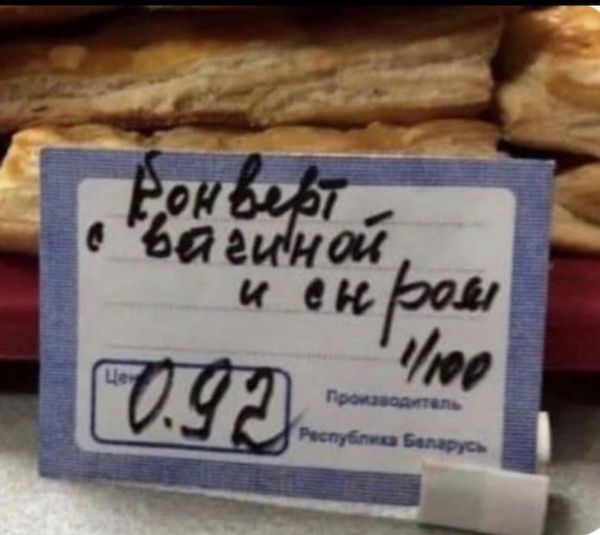 Конверт
с вагиной
и сыром
1/100
Цена 0.92
Производитель
Республика Беларусь